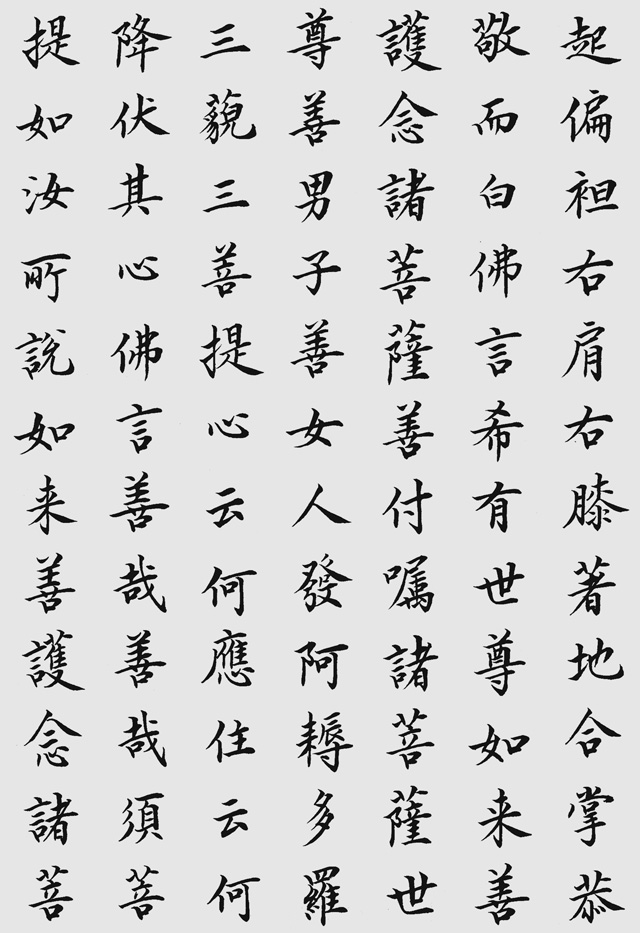 起偏袒右肩右膝著地合掌恭
敬而白佛言希有世尊如来善
護念諸菩薩善付嘱諸菩薩世
尊善男子善女人發阿耨多羅
三藐三善提心云何應住云何
降伏其心佛言善哉善哉須菩
提如汝所說如来善護念諸菩